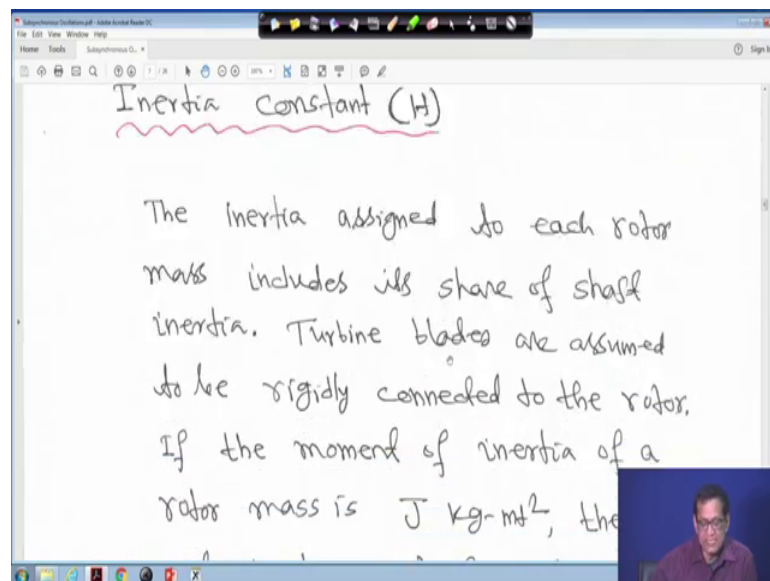 Subsynchronous Oscillations.pdf - Adobe Acrobat Reader DC
File Edit View Window Help
Home Tools Subsynchronous O... ×
Sign In
7 / 26
Inertia constant (H)
The inertia assigned to each rotor
mass includes its share of shaft
inertia. Turbine blades are assumed
to be rigidly connected to the rotor.
If the moment of inertia of a
rotor mass is J kg-mt², the